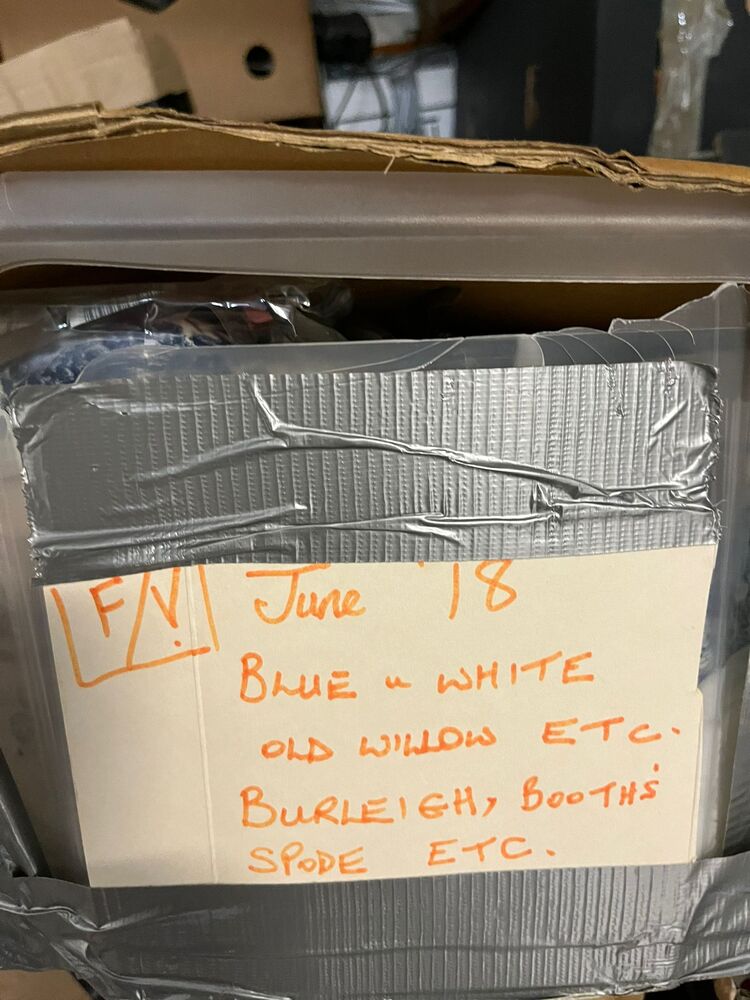 F/V. June '18
BLUE n WHITE
OLD WILLOW ETC.
BURLEIGH, BOOTHS
SPODE ETC.